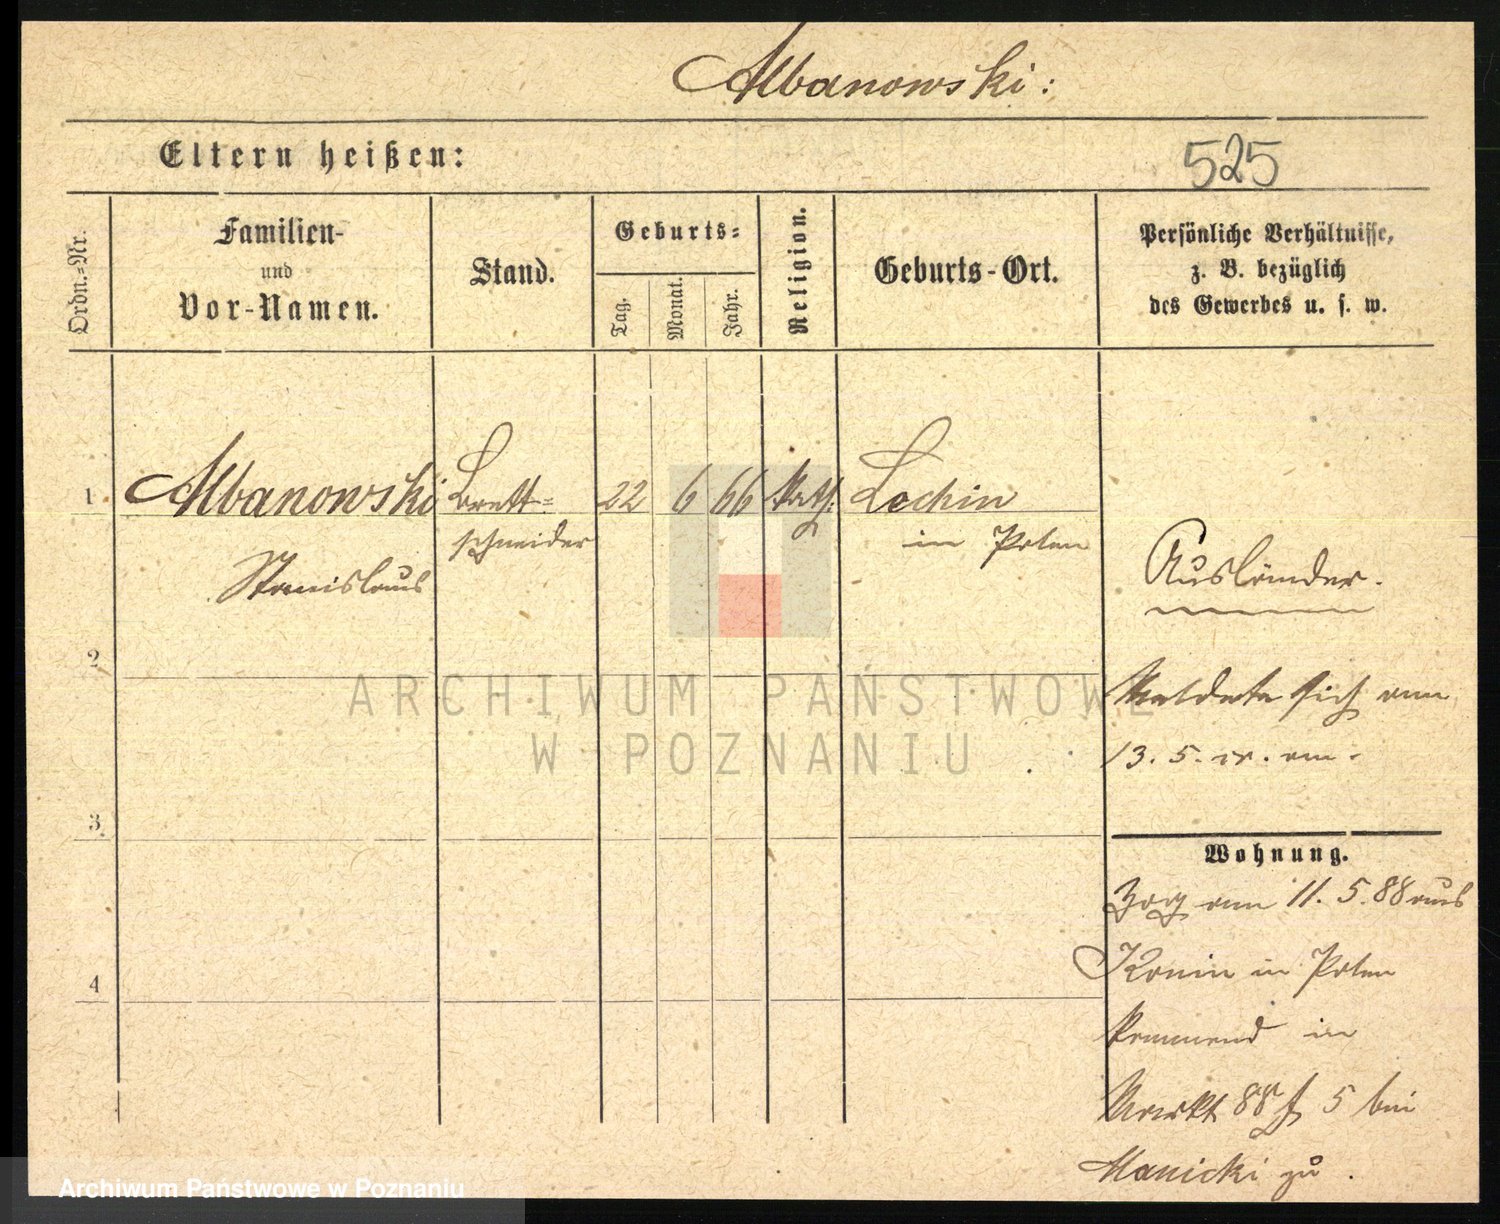 Albanowski:
Eltern heißen:
525
Ordn.-Nr.
Familien-
und
Vor-Namen.
Stand.
Geburts-
Tag.
Monat.
Jahr.
Religion.
Geburts-Ort.
Persönliche Verhältnisse,
z. B. bezüglich
des Gewerbes u. s. w.
1 Albanowski Brett- 22 6 66 Kath. Lechin
schneider in Polen
Stanislaus
Ausländer.
2
Meldete sich am
13. 5. cr. an.
3
Wohnung.
Zog am 11. 5. 88 aus
Konin in Polen
4
kommend in
Markt 88 5 bei
Manicki zu.
ARCHIWUM PAŃSTWOWE
W POZNANIU
Archiwum Państwowe w Poznaniu